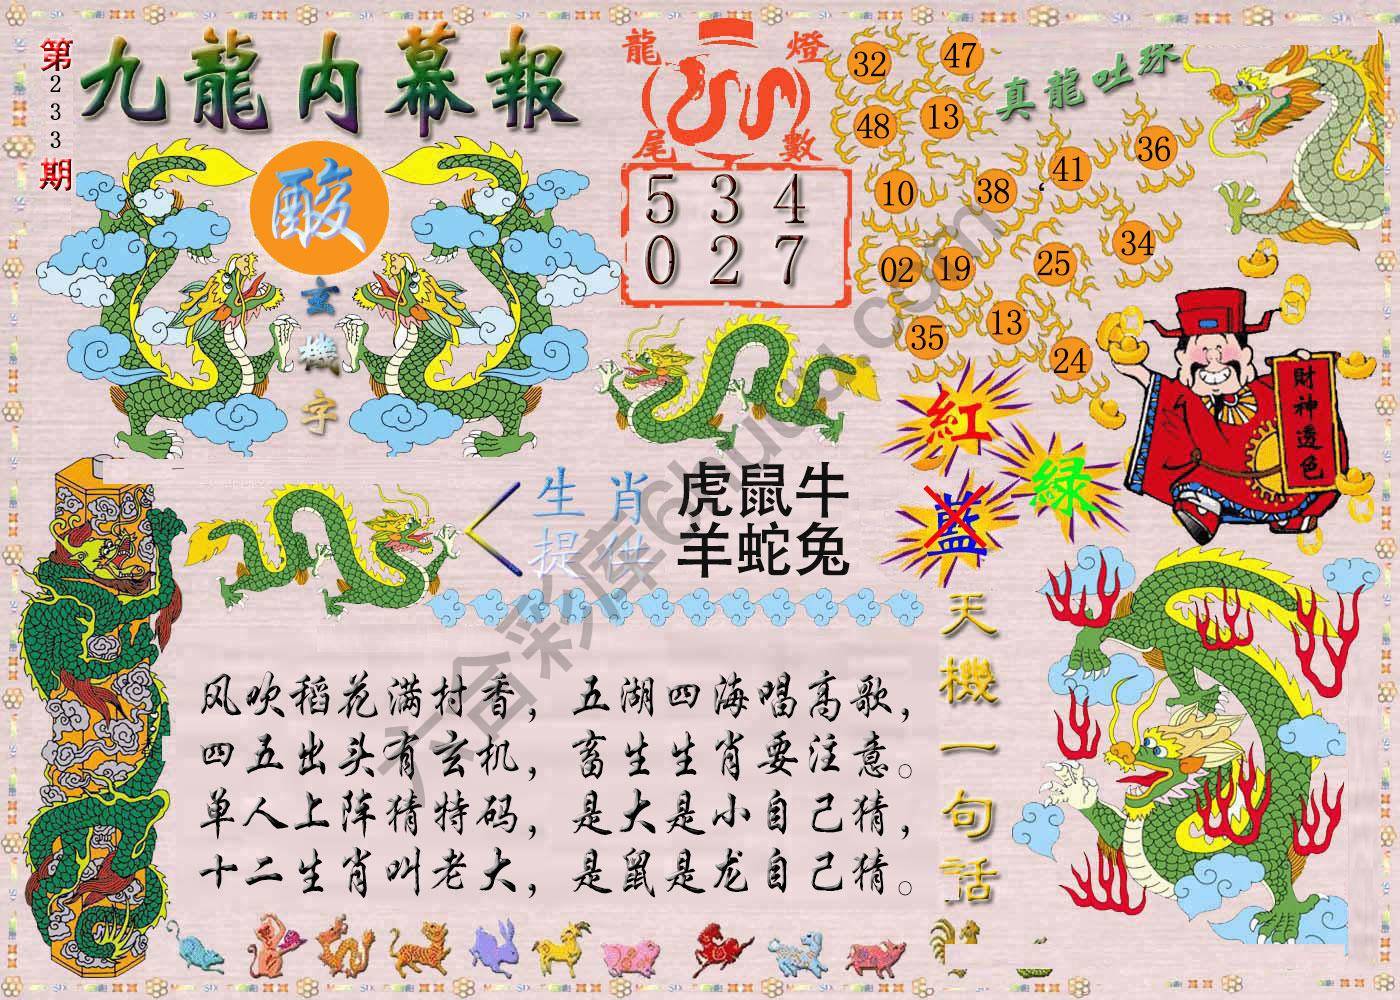 第233期
九龍内幕報
酸
玄機字
龍燈
尾數
5 3 4
0 2 7
真龍吐珠
32 47
48 13
10 38 41 36
02 19 25 34
35 13 24
紅
綠
藍
財神透色
生肖
提供
虎鼠牛
羊蛇兔
天機一句話
风吹稻花满村香，五湖四海唱高歌，
四五出头有玄机，畜生生肖要注意。
单人上阵猜特码，是大是小自己猜，
十二生肖叫老大，是鼠是龙自己猜。